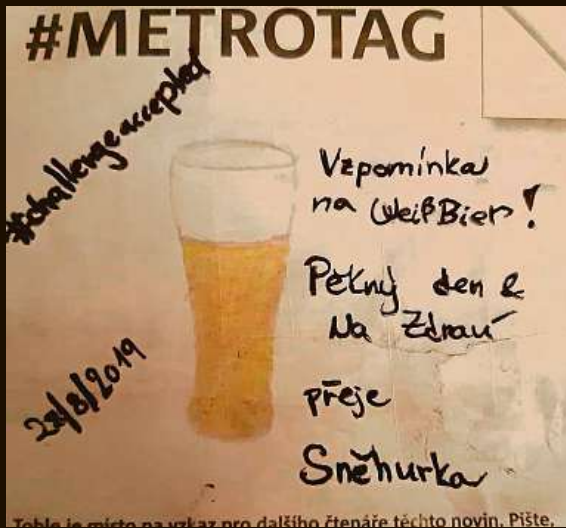 #METROTAG
#challengeaccepted
Vzpomínka
na WeißBier!
Pěkný den &
Na Zdraví
přeje
Sněhurka
28/8/2019
Tohle je místo na vzkaz pro dalšího čtenáře těchto novin. Pište,